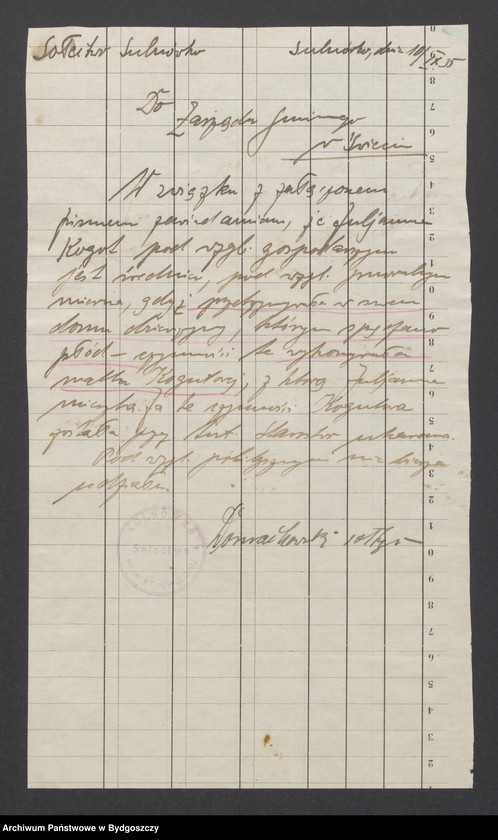 Sołectwo Sulnówko Sulnówko, dnia 10/IX 35
Do
Zarządu Gminnego
w Świeciu
W związku z załączonem
pismem zawiadamiam, że Juljanna
Kogut pod wzgl. gospodarczym
jest średnia, pod wzgl. moralnym
mierna, gdyż przetrzymywała w swem
domu dziewczyny, którym spędzano
płód – czynności te wykonywała
matka Kogutowej, z którą Juljanna
mieszka. Za te czynności Kogutowa
została przez Starostwo ukarana.
Pod wzgl. politycznym nie bierze
udziału.
Domachowski sołtys
SULNÓWKO
Sołectwo
0
9
8
7
6
5
4
3
2
1
0
9
8
7
6
5
4
3
2
1
0
9
8
7
6
5
4
3
2
Archiwum Państwowe w Bydgoszczy